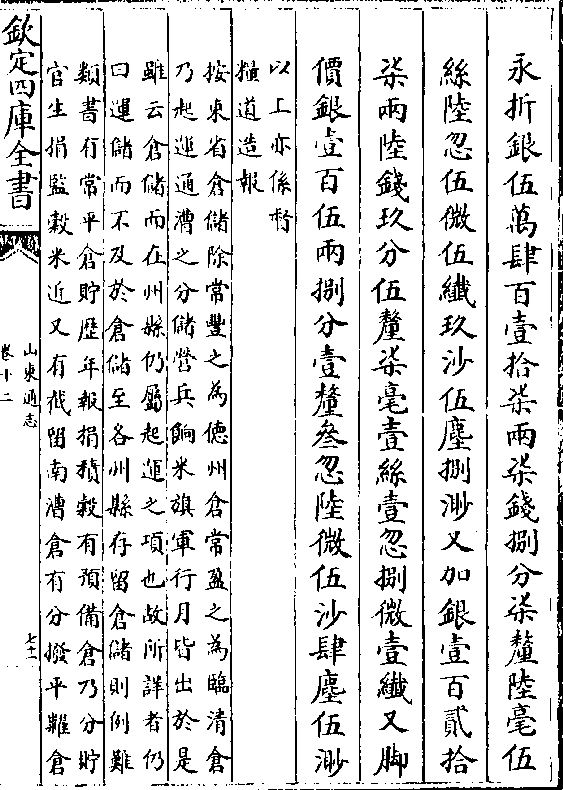 永折銀伍萬肆百壹拾柒兩柒錢捌分柒釐陸毫伍
絲陸忽伍微伍纖玖沙伍塵捌渺又加銀壹百貳拾
柒兩陸錢玖分伍釐柒毫壹絲壹忽捌微壹纖又脚
價銀壹百伍兩捌分壹釐叁忽陸微伍沙肆塵伍渺
以上亦係
糧道造報
按東省倉儲除常豐之為德州倉常盈之為臨清倉
乃起運通漕之分儲營兵餉米旗軍行月皆出於是
雖云倉儲而在州縣仍屬起運之項也故所詳者仍
曰運儲而不及於倉儲至各州縣存留倉儲則例難
類書有常平倉貯歷年報捐積穀有預備倉乃分貯
官生捐監穀米近又有截留南漕倉有分撥平糶倉
欽定四庫全書
山東通志
卷十二
七十一